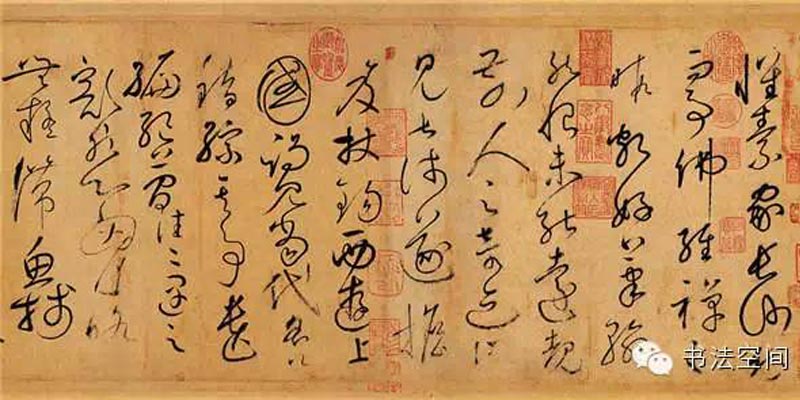 懷素家長沙幼而
事佛經禪之
暇頗好筆翰
然恨未能遠覩
前人之奇迹所
見甚淺遂擔
笈杖錫西遊上
國謁見當代名公
錯綜其事遺
編絕簡往往遇之
豁然心胸略
無疑滯魚牋
书法空间